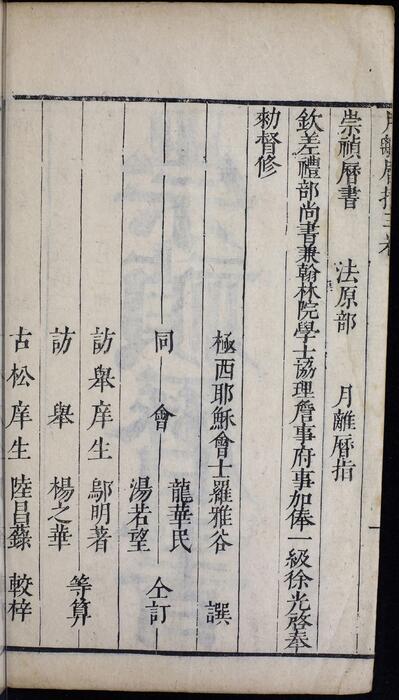 月離曆指三卷
崇禎曆書 法原部 月離曆指
欽差禮部尚書兼翰林院學士協理詹事府事加俸一級徐光啓奉
勑督修
極西耶穌會士羅雅谷 譔
同會 龍華民 湯若望 仝訂
訪舉庠生 鄔明著
訪舉 楊之華 等算
古松庠生 陸昌 較梓